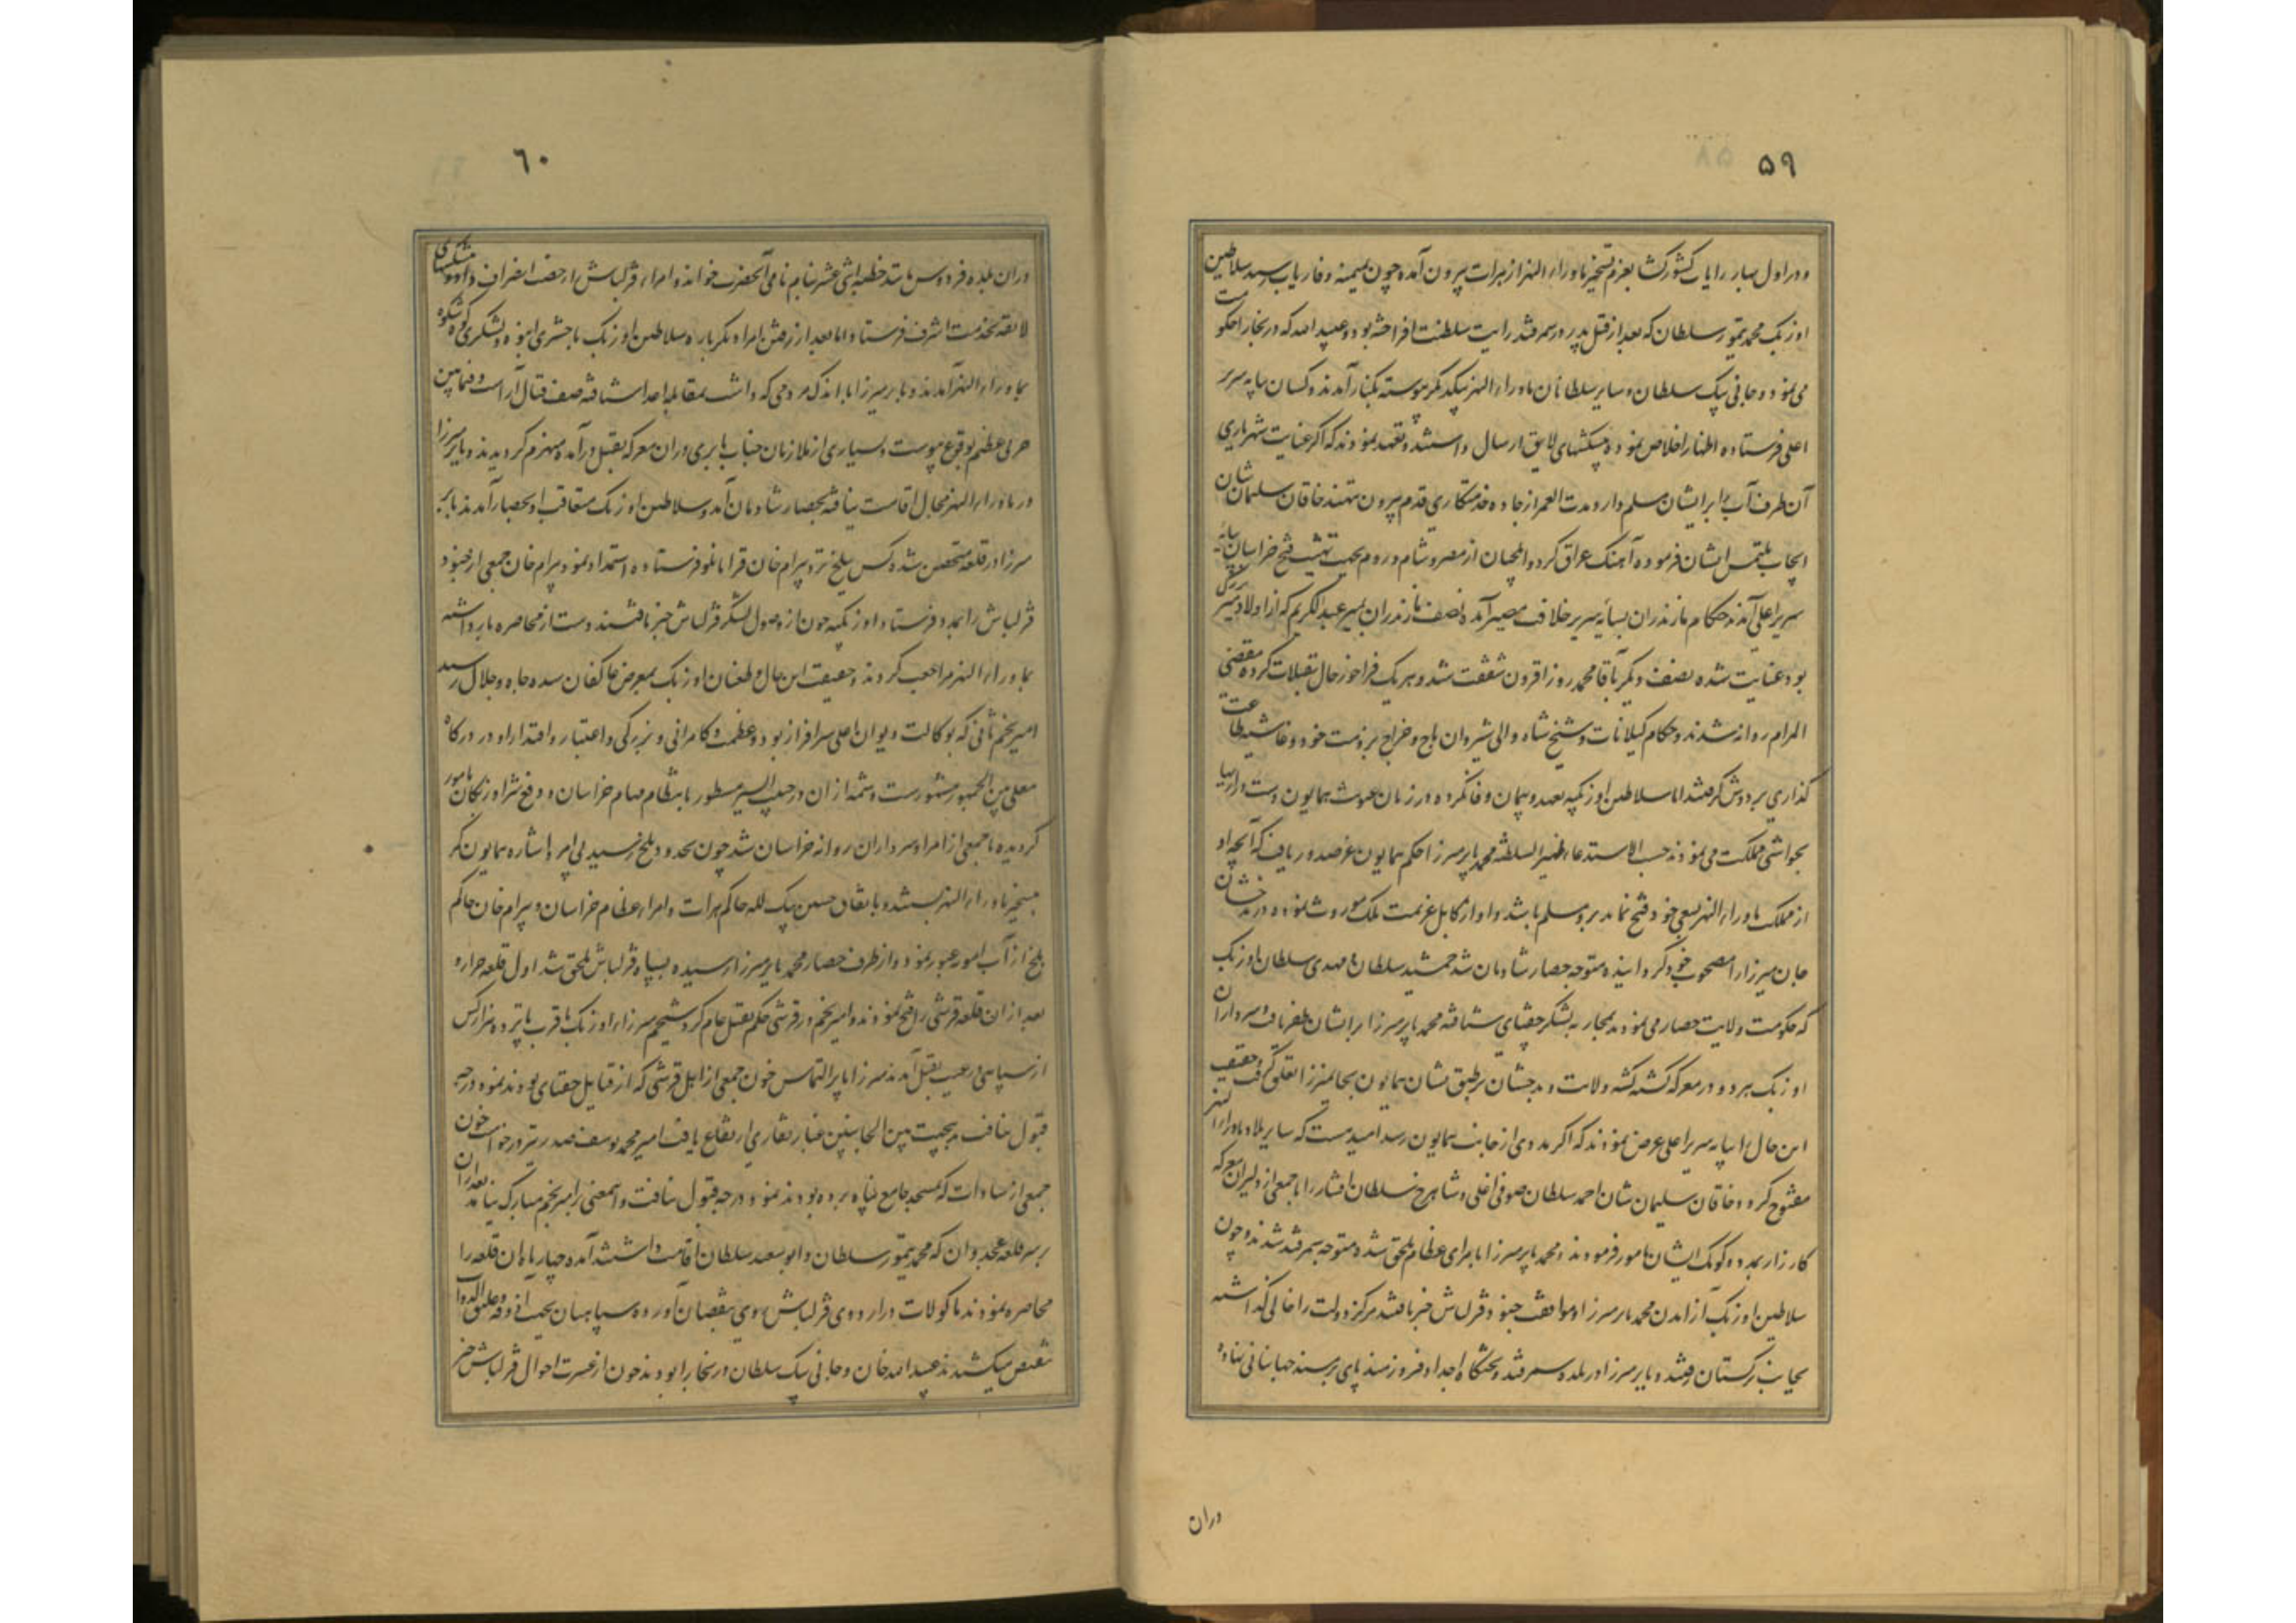 ۵۹
و در اول بهار رایات کشورکشا بعزم تسخیر ماوراءالنهر از هرات بیرون آمده چون بمیمنه و فاریاب رسید سلاطین
اوزبک محمد تیمور سلطان که بعد از قتل پدر در سمرقند رایت سلطنت افراخته بود و عبیدالله که در بخارا حکومت
می نمود و جانی بیک سلطان و سایر سلطانان ماوراءالنهر بیکدیگر پیوسته بکنار آمدند و کسان بپایه سریر
اعلی فرستاده اظهار اخلاص نموده پیشکشهای لایق ارسال داشتند و تعهد نمودند که اگر عنایت شهریاری
آن طرف آب را بر ایشان مسلم دارد مدت العمر از جاده خدمتکاری قدم بیرون ننهند خاقان سلیمان شان
ایجاب ملتمس ایشان فرموده آهنگ عراق کرد و ایلچیان از مصر و شام و روم بجهت تهنیت فتح خراسان بپایه
سریر اعلی آمدند حکام مازندران بسایه سریر خلافت مصیر آمده نصف مازندران بمیر عبدالکریم که از اولاد میر بزرگ
بود عنایت شده نصف دیگر بآقا محمد روزافزون شفقت شد و هر یک فراخور حال تقبلات کرده مقضی
المرام روانه شدند و حکام گیلانات و شیخ شاه والی شیروان باج و خراج بر ذمت خود و غاشیه طاعت
گذاری بر دوش گرفتند اما سلاطین اوزبکیه بعهد و پیمان وفا نکرده در زمان همایون دست درازیها
بحواشی مملکت می نمودند حسب الاستدعاء ظهیر السلطنه محمد بابر میرزا حکم همایون عز صدور یافت که آنچه او
از مملکت ماوراءالنهر بسعی خود فتح نماید برو مسلم باشد و او از کابل عزیمت ملک موروث نموده در بدخشان
جان میرزا را مصحوب خود گردانیده متوجه حصار شادمان شد حمشید سلطان با مهدی سلطان اوزبک
که حکومت ولایت حصار می نمودند بمحاربه لشکر جغتای شتافته محمد بابر میرزا بر ایشان ظفر یافت سرداران
اوزبک هر دو در معرکه کشته گشته ولایت بدخشان بر طبق نشان همایون بجان میرزا تعلق گرفت حقیقت
این حال را بپایه سریر اعلی عرض نمودند که اگر مددی از جانب همایون رسد امیدست که سایر بلاد ماوراءالنهر
مفتوح گردد خاقان سلیمان شان احمد سلطان صوفی اغلی و شاهرخ سلطان افشار را با جمعی از دلیران معرکه
کارزار بمدد و کومک ایشان مامور فرمودند و محمد بابر میرزا بامرای عظام ملحق شده متوجه سمرقند شدند و چون
سلاطین اوزبک از آمدن محمد بابر میرزا و موافقت جنود قزلباش خبر یافتند مرکز دولت را خالی گذاشته
بجانب ترکستان رفتند و بابر میرزا در بلده سمرقند و تختگاه اجداد فیروزمند پای بر مسند جهانبانی نهاده
دران
٦۰
دران بلده فردوس مانند خطبه اثنی عشر بنام نامی آنحضرت خوانده و امراء قزلباش را رخصت انصراف داد و پیشکشهای
لایقه بخدمت اشرف فرستاد اما بعد از رفتن امرا دیگر باره سلاطین اوزبک با حشری انبوه و لشکری کوه شکوه
بماوراءالنهر آمدند و بابر میرزا با اندک مردمی که داشت بمقابله اعدا شتافته صف قتال آراست و فیما بین
حربی عظیم بوقوع پیوست و بسیاری از ملازمان جناب بابری دران معرکه بقتل درآمده منهزم گردیدند و بابر میرزا
در ماوراءالنهر مجال اقامت نیافته بحصار شادمان آمد و سلاطین اوزبک متعاقب او بحصار آمدند بابر
میرزا در قلعه متحصن شده کس ببلخ نزد بیرام خان قرامانلو فرستاده استمداد نمود بیرام خان جمعی از جنود
قزلباش را بمدد فرستاد و اوزبکیه چون از وصول لشکر قزلباش خبر یافتند دست از محاصره باز داشته
بماوراءالنهر مراجعت کردند و حقیقت این حال و طغیان اوزبک بمعرض عاکفان سده جاه و جلال رسید
امیر نجم ثانی که بوکالت دیوان اعلی سرافراز بود و عظمت و کامرانی و بزرگی و اعتبار و اقتدار او در درگاه
معلی بین الجمهور مشهورست و شمه از ان در حبیب السیر مسطور بانتظام مهام خراسان و دفع شر اوزبکان مامور
گردیده با جمعی از امرا و سرداران روانه خراسان شد چون بحدود بلخ رسید بی امر و اشاره همایون کمر
بتسخیر ماوراءالنهر بست و باتفاق حسین بیک لله حاکم هرات و امراء عظام خراسان و بیرام خان حاکم
بلخ از آب امویه عبور نمود و از طرف حصار محمد بابر میرزا رسیده بسپاه قزلباش ملحق شد اول قلعه خزار و
بعد از ان قلعه قرشی را فتح نمودند و امیر نجم در قرشی حکم بقتل عام کرد شیخم میرزاء اوزبک با قرب پانزده هزار کس
از سپاهی و رعیت بقتل آمدند میرزا بابر التماس خون جمعی از اهل قرشی که از قبایل جغتای بودند نموده درجه
قبول نیافت بدین جهت بین الجانبین غبار نقاری ارتفاع یافت امیر محمد یوسف صدر نیز درخواست خون
جمعی از سادات که بمسجد جامع پناه برده بودند نمود درجه قبول نیافت و اینمعنی بر امیر نجم مبارک نیامد بعد از ان
بر سر قلعه غجدوان که محمد تیمور سلطان و ابوسعید سلطان اقامت داشتند آمده چهار ماه ان قلعه را
محاصره نمودند ماکولات در اردوی قزلباش روی بنقصان آورده سپاهیان بجهت آذوقه و علیق الدواب
تنقیص میکشیدند عبیدالله خان و جانی بیک سلطان در بخارا بودند چون از عسرت احوال قزلباش خبر